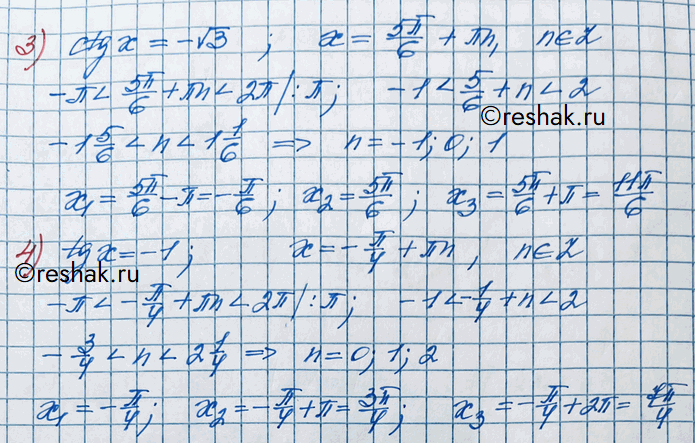 3) ctg x = -√3 ; x = 5π/6 + πn, n∈Z
-π < 5π/6 + πn < 2π |:π; -1 < 5/6 + n < 2
©reshak.ru
-1 5/6 < n < 1 1/6 => n = -1; 0; 1
x₁ = 5π/6 - π = -π/6; x₂ = 5π/6; x₃ = 5π/6 + π = 11π/6
4) tg x = -1; x = -π/4 + πn, n∈Z
©reshak.ru
-π < -π/4 + πn < 2π |:π; -1 < -1/4 + n < 2
-3/4 < n < 2 1/4 => n = 0; 1; 2
©reshak.ru
x₁ = -π/4; x₂ = -π/4 + π = 3π/4; x₃ = -π/4 + 2π = 7π/4